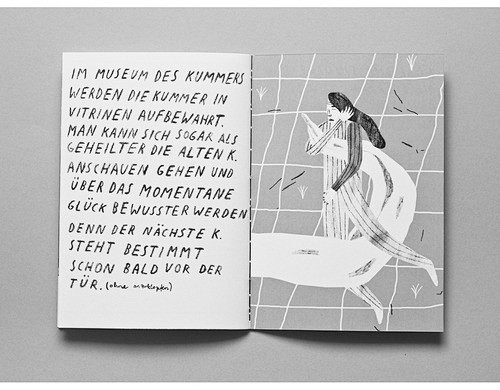 IM MUSEUM DES KUMMERS
WERDEN DIE KUMMER IN
VITRINEN AUFBEWAHRT.
MAN KANN SICH SOGAR ALS
GEHEILTER DIE ALTEN K.
ANSCHAUEN GEHEN UND
ÜBER DAS MOMENTANE
GLÜCK BEWUSSTER WERDEN
DENN DER NÄCHSTE K.
STEHT BESTIMMT
SCHON BALD VOR DER
TÜR. (ohne anklopfen)